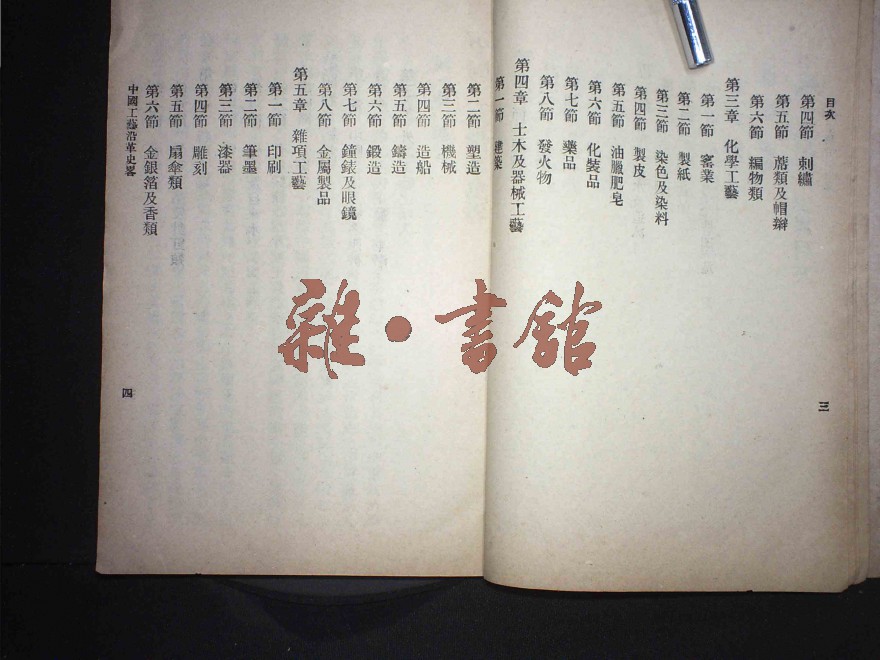 目次
第四節 刺繡
第五節 蓆類及帽辮
第六節 編物類
第三章 化學工藝
第一節 窰業
第二節 製紙
第三節 染色及染料
第四節 製皮
第五節 油臘肥皂
第六節 化裝品
第七節 藥品
第八節 發火物
第四章 土木及器械工藝
第一節 建築
三
第二節 塑造
第三節 機械
第四節 造船
第五節 鑄造
第六節 鍛造
第七節 鐘錶及眼鏡
第八節 金屬製品
第五章 雜項工藝
第一節 印刷
第二節 筆墨
第三節 漆器
第四節 雕刻
第五節 扇傘類
第六節 金銀箔及香類
中國工藝沿革史畧
四
雜·書館